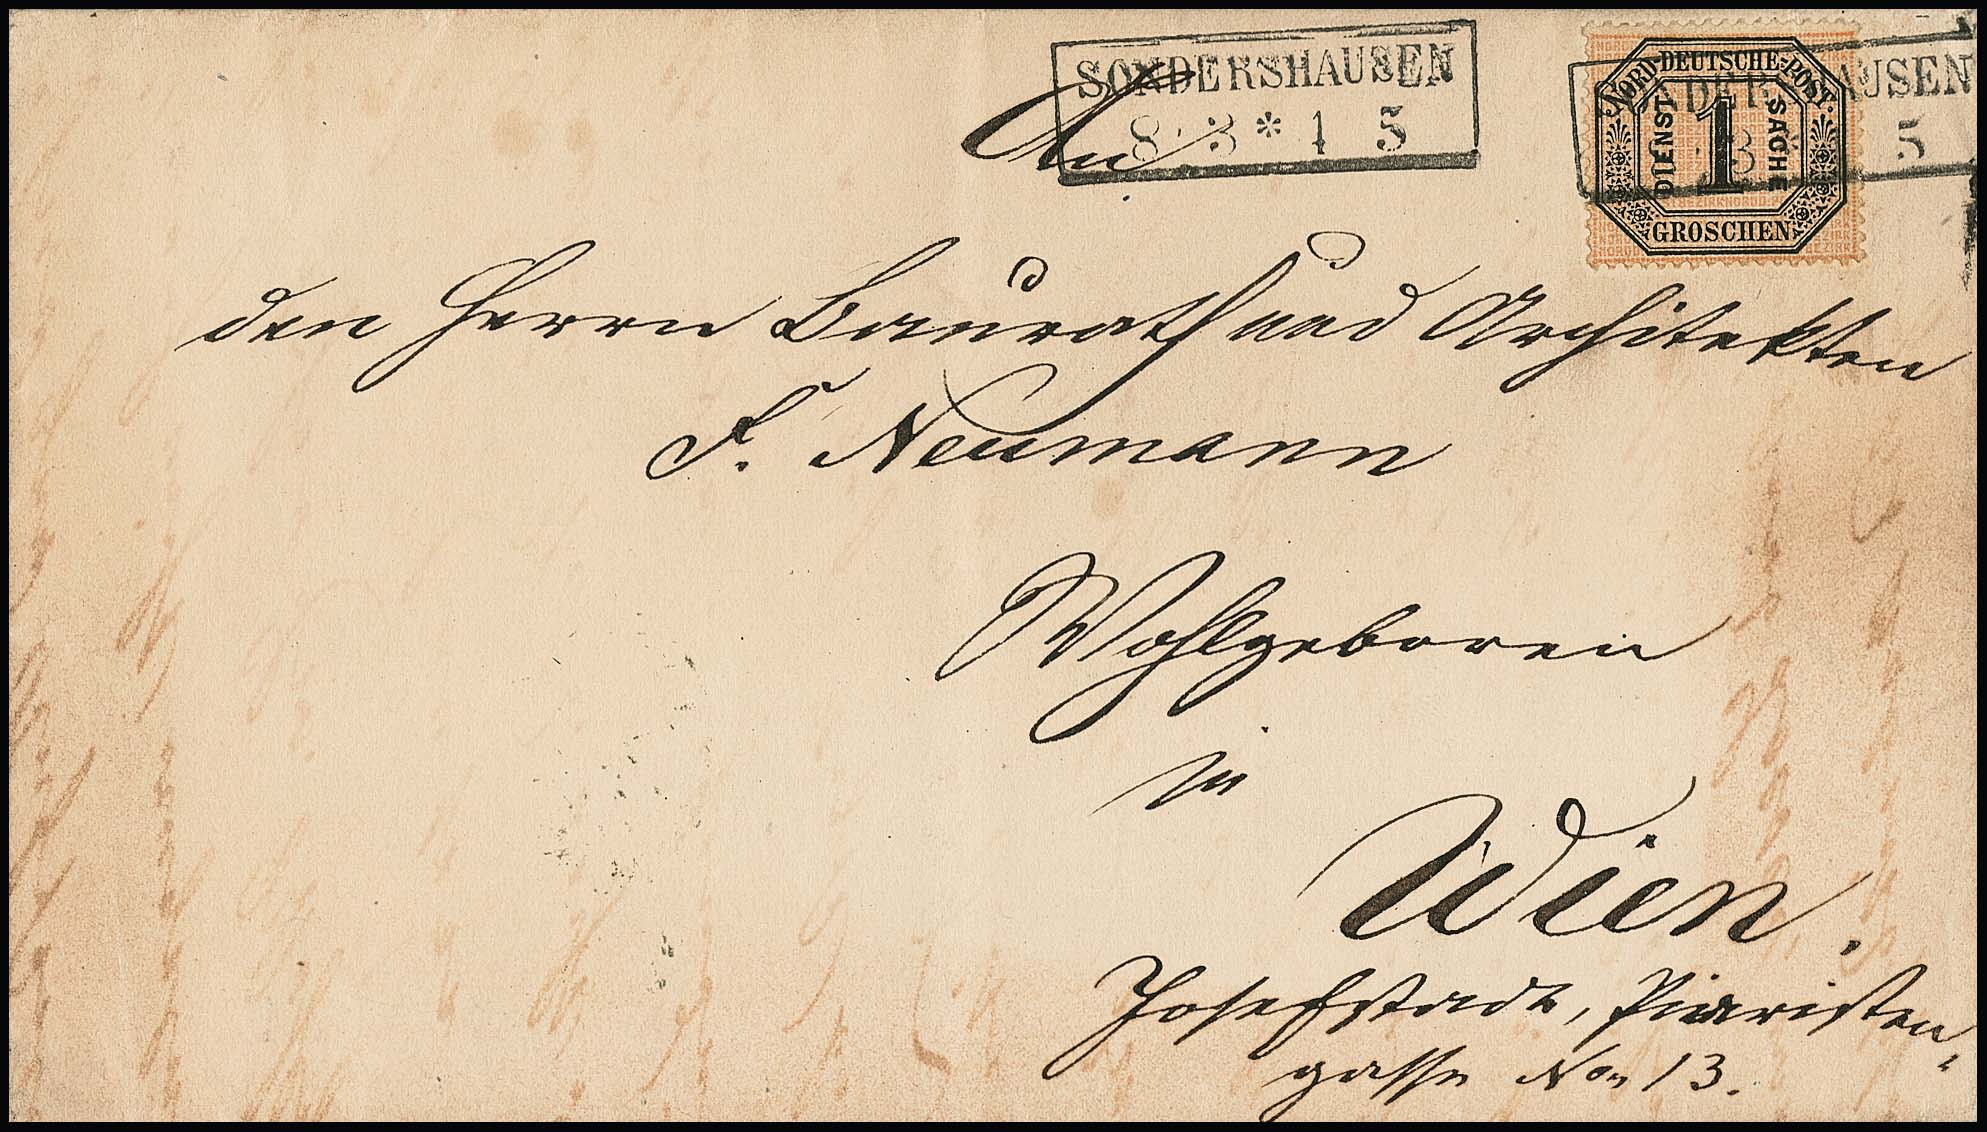 SONDERSHAUSEN
8 3 * 1 5
NORD-DEUTSCHE-POST.
DIENST 1 SACHE
GROSCHEN
An
den Herrn Baurath und Architekten
F. Neumann
Wohlgeboren
in
Wien.
Josefstadt, Piaristen-
gasse No. 13.